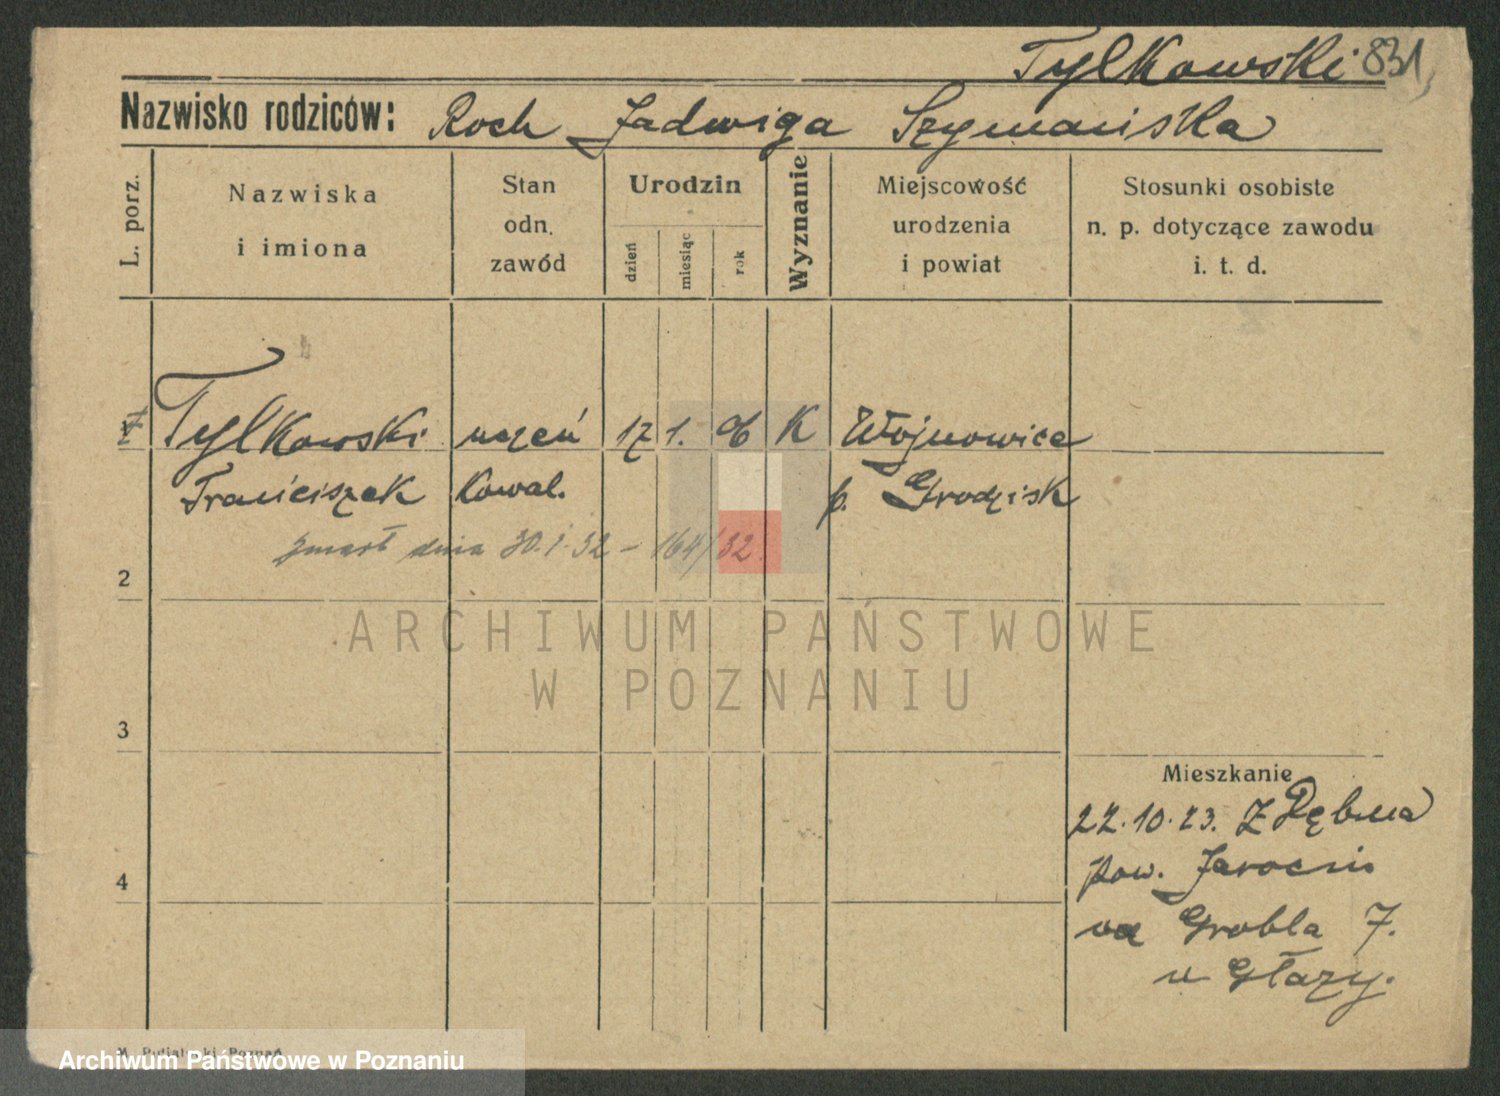 Tylkowski 831
Nazwisko rodziców: Roch Jadwiga Szymańska
L. porz.
Nazwiska
i imiona
Stan
odn.
zawód
Urodzin
dzień
miesiąc
rok
Wyznanie
Miejscowość
urodzenia
i powiat
Stosunki osobiste
n. p. dotyczące zawodu
i. t. d.
Tylkowski uczeń 17 1. 06 K Wojnowice
Franciszek Kowal. p. Grodzisk
zmarł dnia 30.1.32 – 164/32.
2
ARCHIWUM PAŃSTWOWE
W POZNANIU
3
Mieszkanie
22.10.23. z Dębna
pow. Jarocin
na Grobla 7.
u Głazy.
4
Archiwum Państwowe w Poznaniu